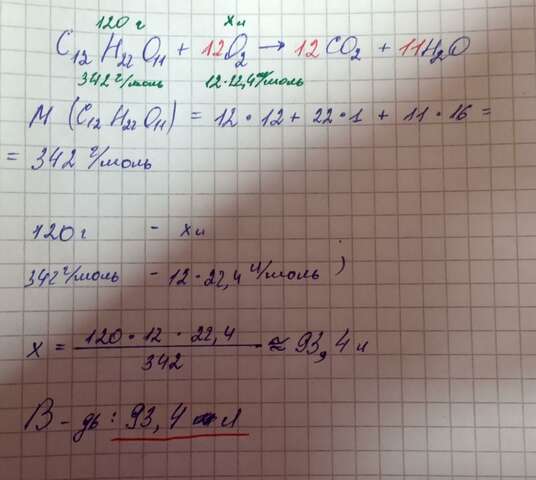 120 г х л
C12 H22 O11 + 12O2 → 12CO2 + 11H2O
342 г/моль 12·22,4 л/моль
M (C12 H22 O11) = 12·12 + 22·1 + 11·16 =
= 342 г/моль
120 г - х л
342 г/моль - 12·22,4 л/моль ;
X = 120·12·22,4 / 342 ≈ 93,4 л
В-дь: 93,4 л